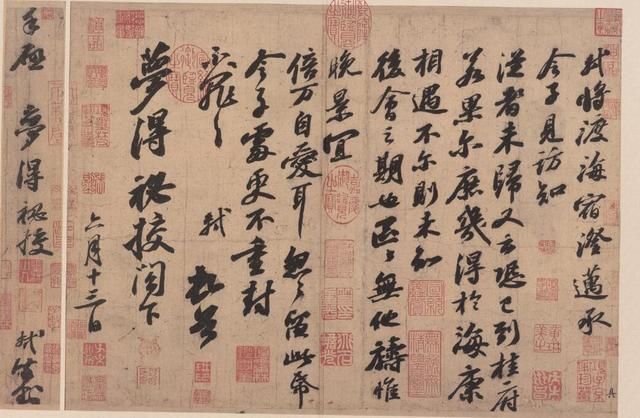 軾將渡海宿澄邁承
令子見訪知
從者未歸又云恐已到桂府
若果尔庶幾得於海康
相遇不尔則未知
後會之期也區〻無他禱惟
晚景宜
倍万自愛耳 忽〻留此帋
令子處更不重封
不罪〻 軾 頓首
夢得祕校閤下
六月十三日
手啟 夢得祕校 軾 封